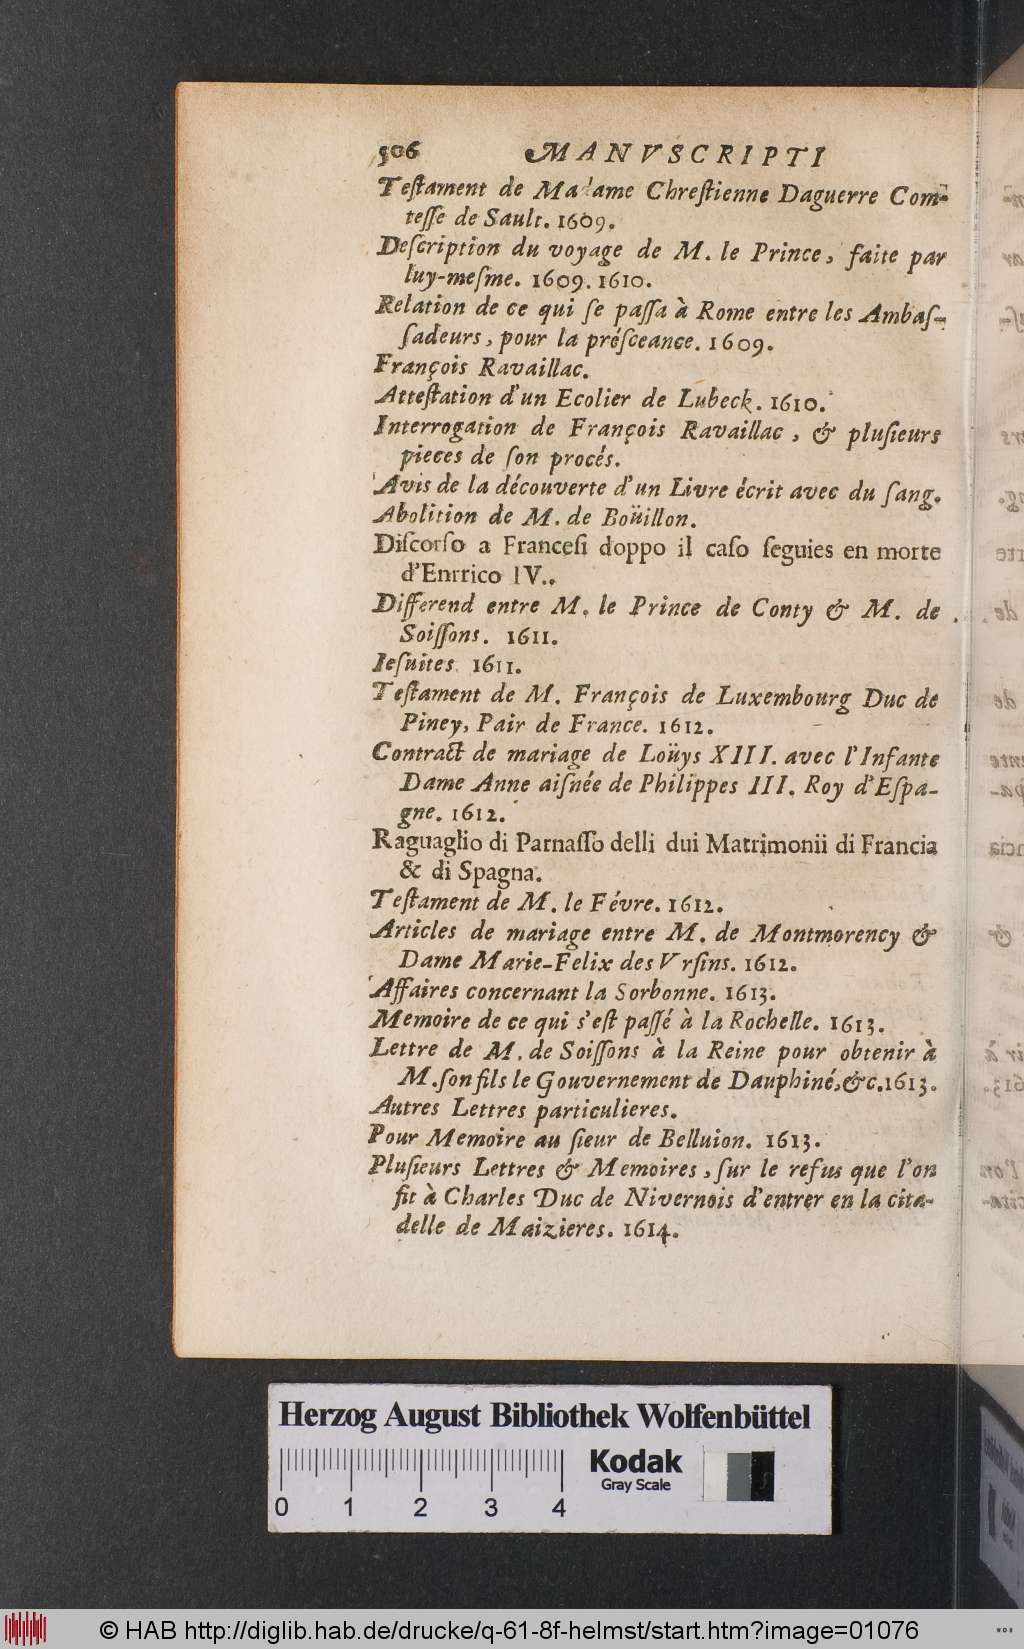 506 MANVSCRIPTI
Teſtament de Madame Chreſtienne Daguerre Com-
teſſe de Sault. 1609.
Deſcription du voyage de M. le Prince, faite par
luy-meſme. 1609. 1610.
Relation de ce qui ſe paſſa à Rome entre les Ambaſ-
ſadeurs, pour la préſceance. 1609.
François Ravaillac.
Atteſtation d'un Ecolier de Lubeck. 1610.
Interrogation de François Ravaillac, & pluſieurs
pieces de ſon procés.
Avis de la découverte d'un Livre écrit avec du ſang.
Abolition de M. de Boüillon.
Diſcorſo a Franceſi doppo il caſo ſeguies en morte
d'Enrrico IV..
Differend entre M. le Prince de Conty & M. de
Soiſſons. 1611.
Ieſuites. 1611.
Teſtament de M. François de Luxembourg Duc de
Piney, Pair de France. 1612.
Contract de mariage de Loüys XIII. avec l'Infante
Dame Anne aiſnée de Philippes III. Roy d'Eſpa-
gne. 1612.
Raguaglio di Parnaſſo delli dui Matrimonii di Francia
& di Spagna.
Teſtament de M. le Févre. 1612.
Articles de mariage entre M. de Montmorency &
Dame Marie-Felix des Vrſins. 1612.
Affaires concernant la Sorbonne. 1613.
Memoire de ce qui s'eſt paſſé à la Rochelle. 1613.
Lettre de M. de Soiſſons à la Reine pour obtenir à
M. ſon fils le Gouvernement de Dauphiné, &c. 1613.
Autres Lettres particulieres.
Pour Memoire au ſieur de Belluion. 1613.
Pluſieurs Lettres & Memoires, ſur le refus que l'on
fit à Charles Duc de Nivernois d'entrer en la cita-
delle de Maizieres. 1614.
Herzog August Bibliothek Wolfenbüttel
Kodak
Gray Scale
0 1 2 3 4
© HAB http://diglib.hab.de/drucke/q-61-8f-helmst/start.htm?image=01076